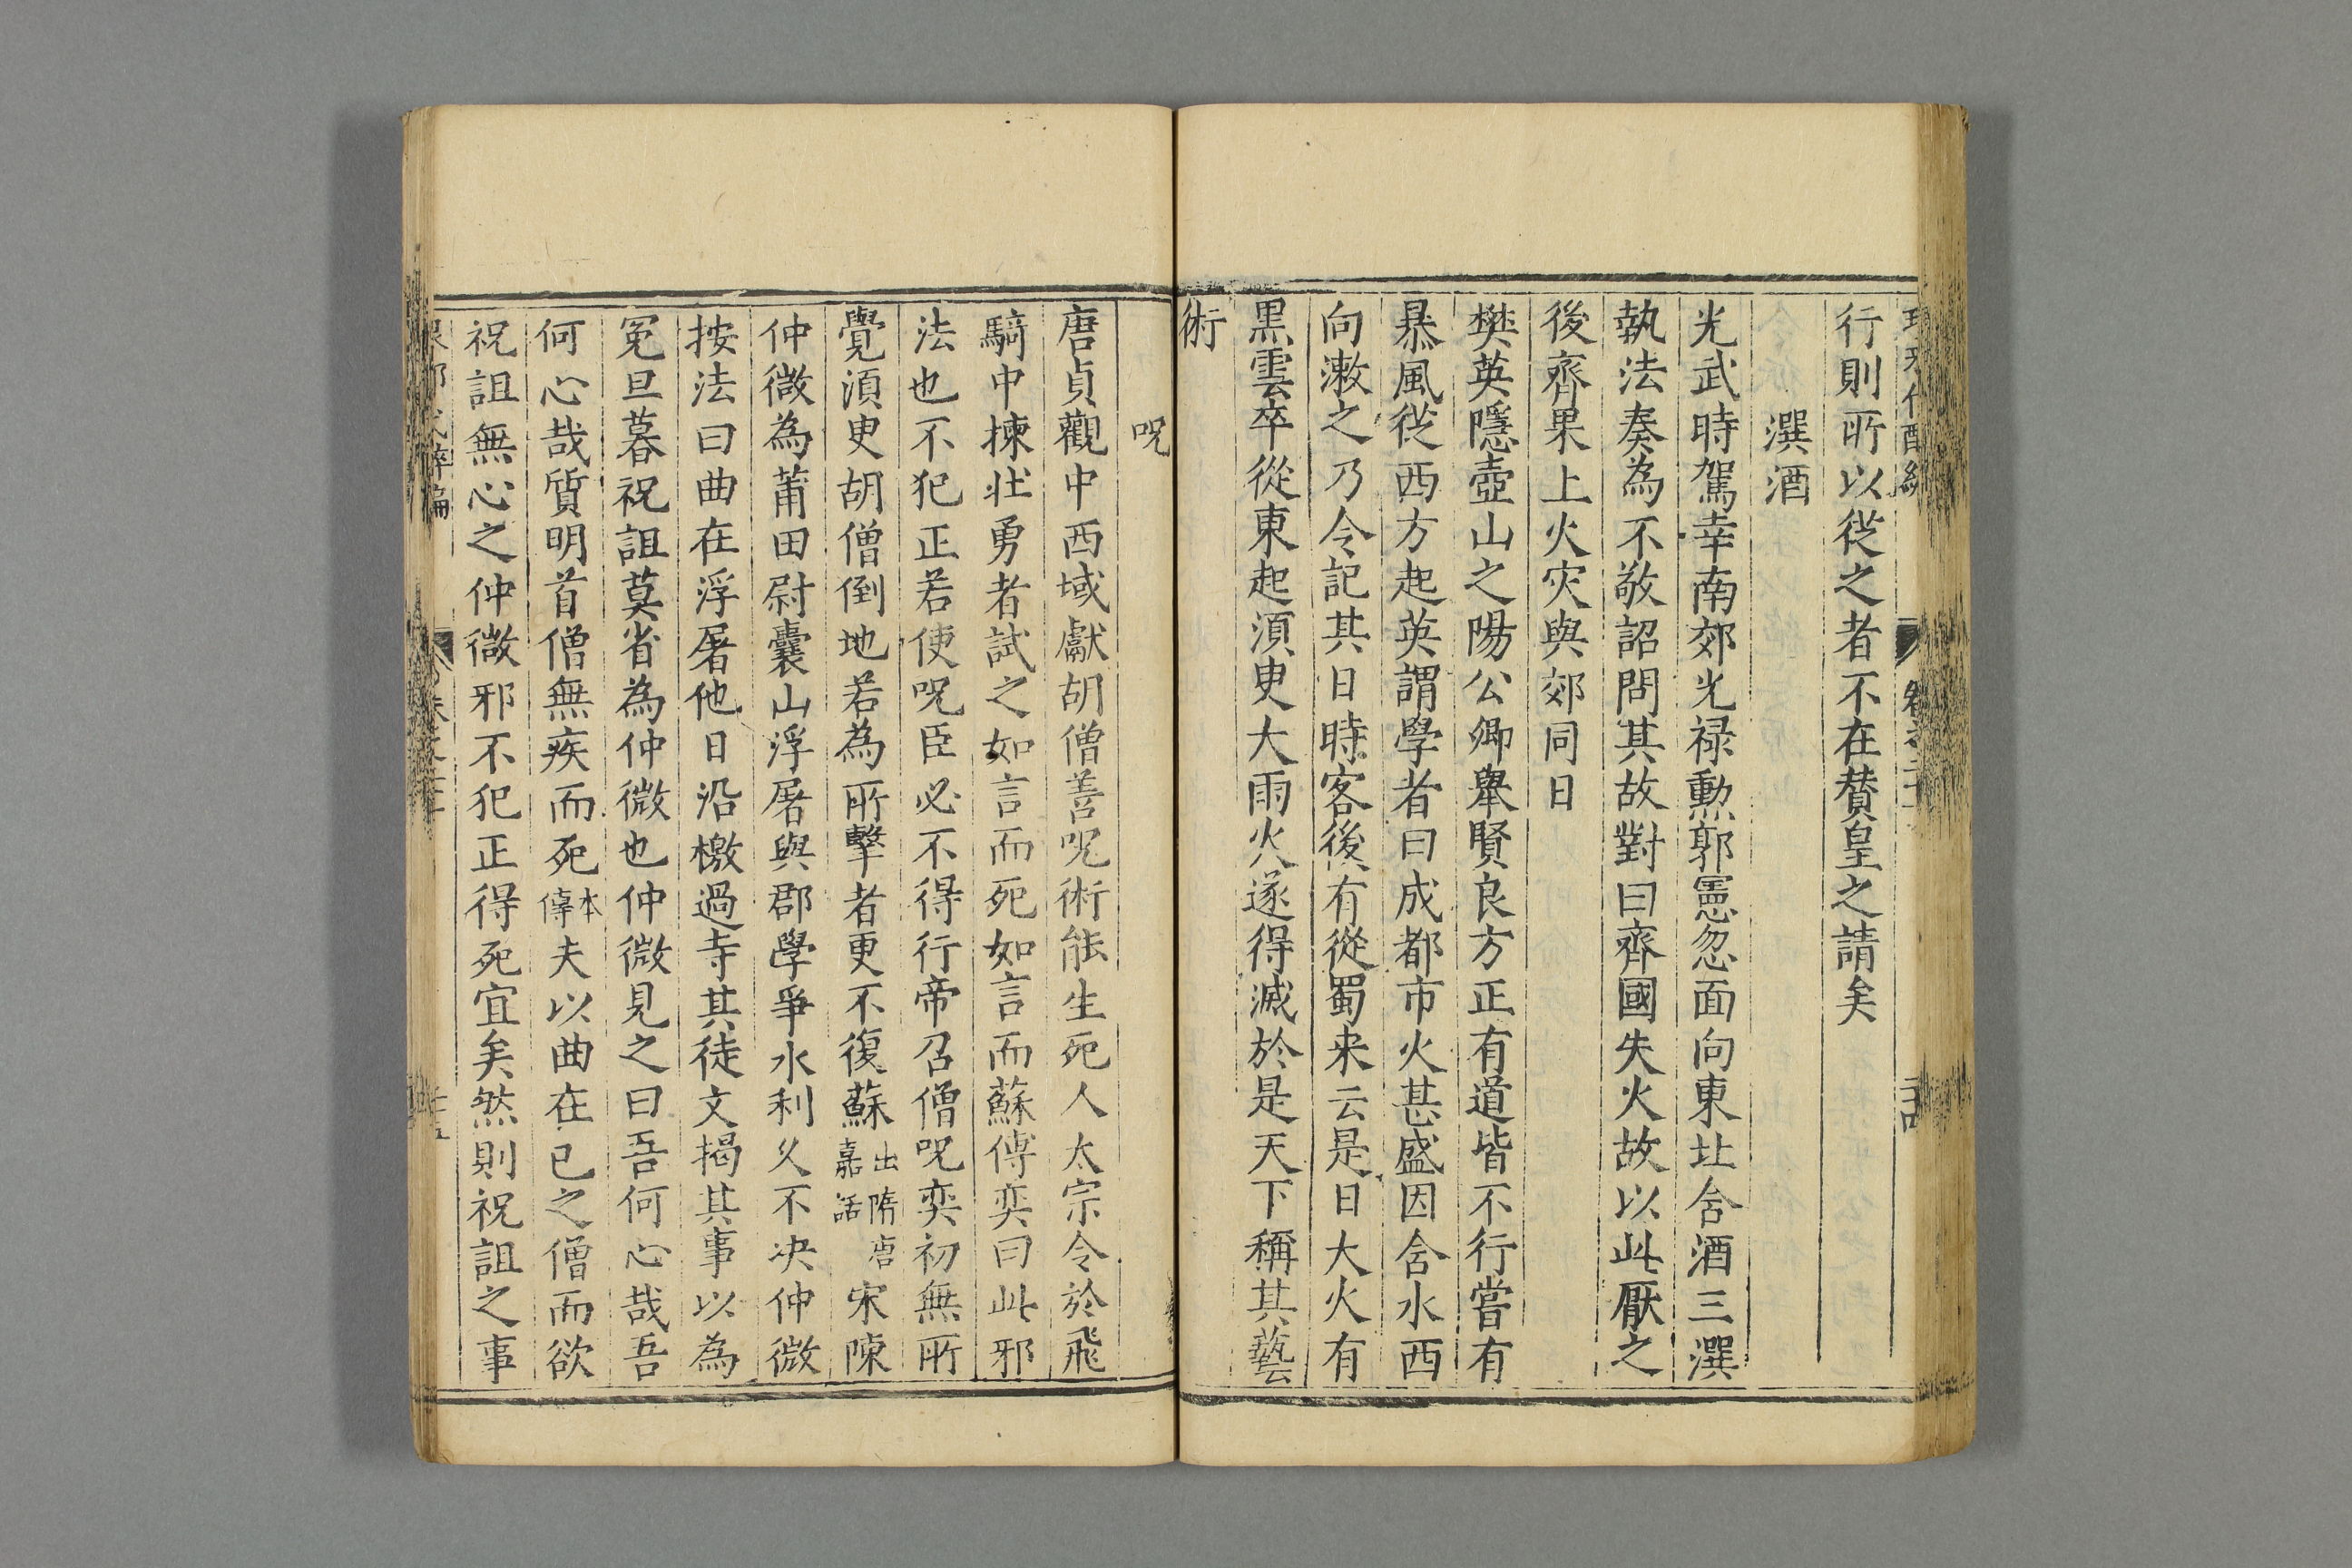 行則所以從之者不在賛皇之請矣
潠酒
光武時駕幸南郊光禄勲郭憲忽面向東北含酒三潠
執法奏為不敬詔問其故對曰齊國失火故以此厭之
後齊果上火灾與郊同日
樊英隱壺山之陽公卿舉賢良方正有道皆不行嘗有
暴風從西方起英謂學者曰成都市火甚盛因含水西
向漱之乃令記其日時客後有從蜀来云是日大火有
黒雲卒從東起湏臾大雨火遂得滅於是天下稱其藝
術
呪
唐貞觀中西域獻胡僧善呪術能生死人太宗令於飛
騎中揀壮勇者試之如言而死如言而蘇傅奕曰此邪
法也不犯正若使呪臣必不得行帝召僧呪奕初無所
覺湏臾胡僧倒地若為所擊者更不復蘇出隋唐嘉話宋陳
仲微為莆田尉囊山浮屠與郡學爭水利久不决仲微
按法曰曲在浮屠他日沿檄過寺其徒文揭其事以為
冤旦暮祝詛莫省為仲微也仲微見之曰吾何心哉吾
何心哉質明首僧無疾而死本傳夫以曲在已之僧而欲
祝詛無心之仲微邪不犯正得死宜矣然則祝詛之事